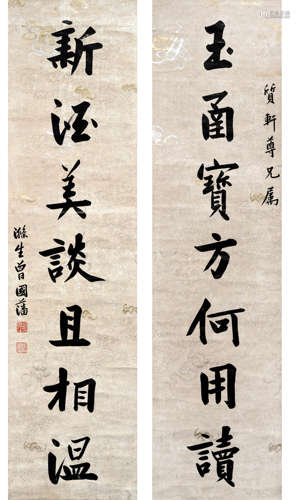 質軒尊兄屬
玉函寶方何用讀
新酒美談且相溫
滌生曾國藩